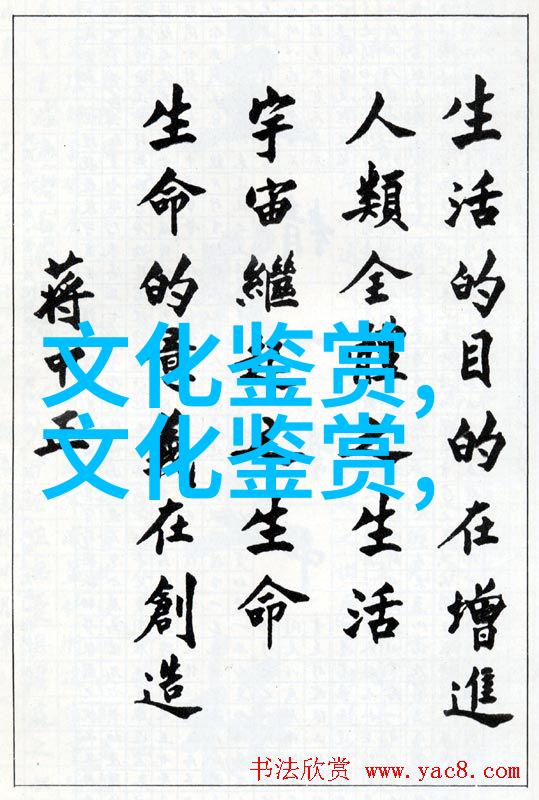 生活的目的在增進
人類全體之生活
宇宙繼起之生命
生命的意義在創造
蔣中正
文化鉴赏,
文化鉴赏,
书法欣赏 www.yac8.com